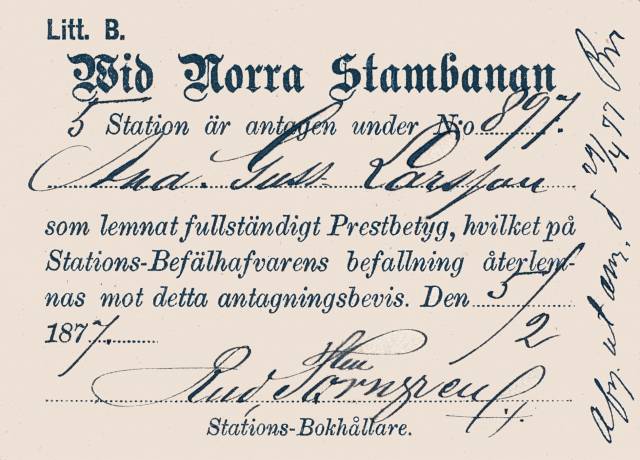 Litt. B.
Wid Norra Stambanan
5 Station är antagen under N:o 897.
And. Gust Larsson
som lemnat fullständigt Prestbetyg, hvilket på
Stations-Befälhafvarens befallning återlem-
nas mot detta antagningsbevis. Den 5/2
1877.
Stations-Bokhållare.